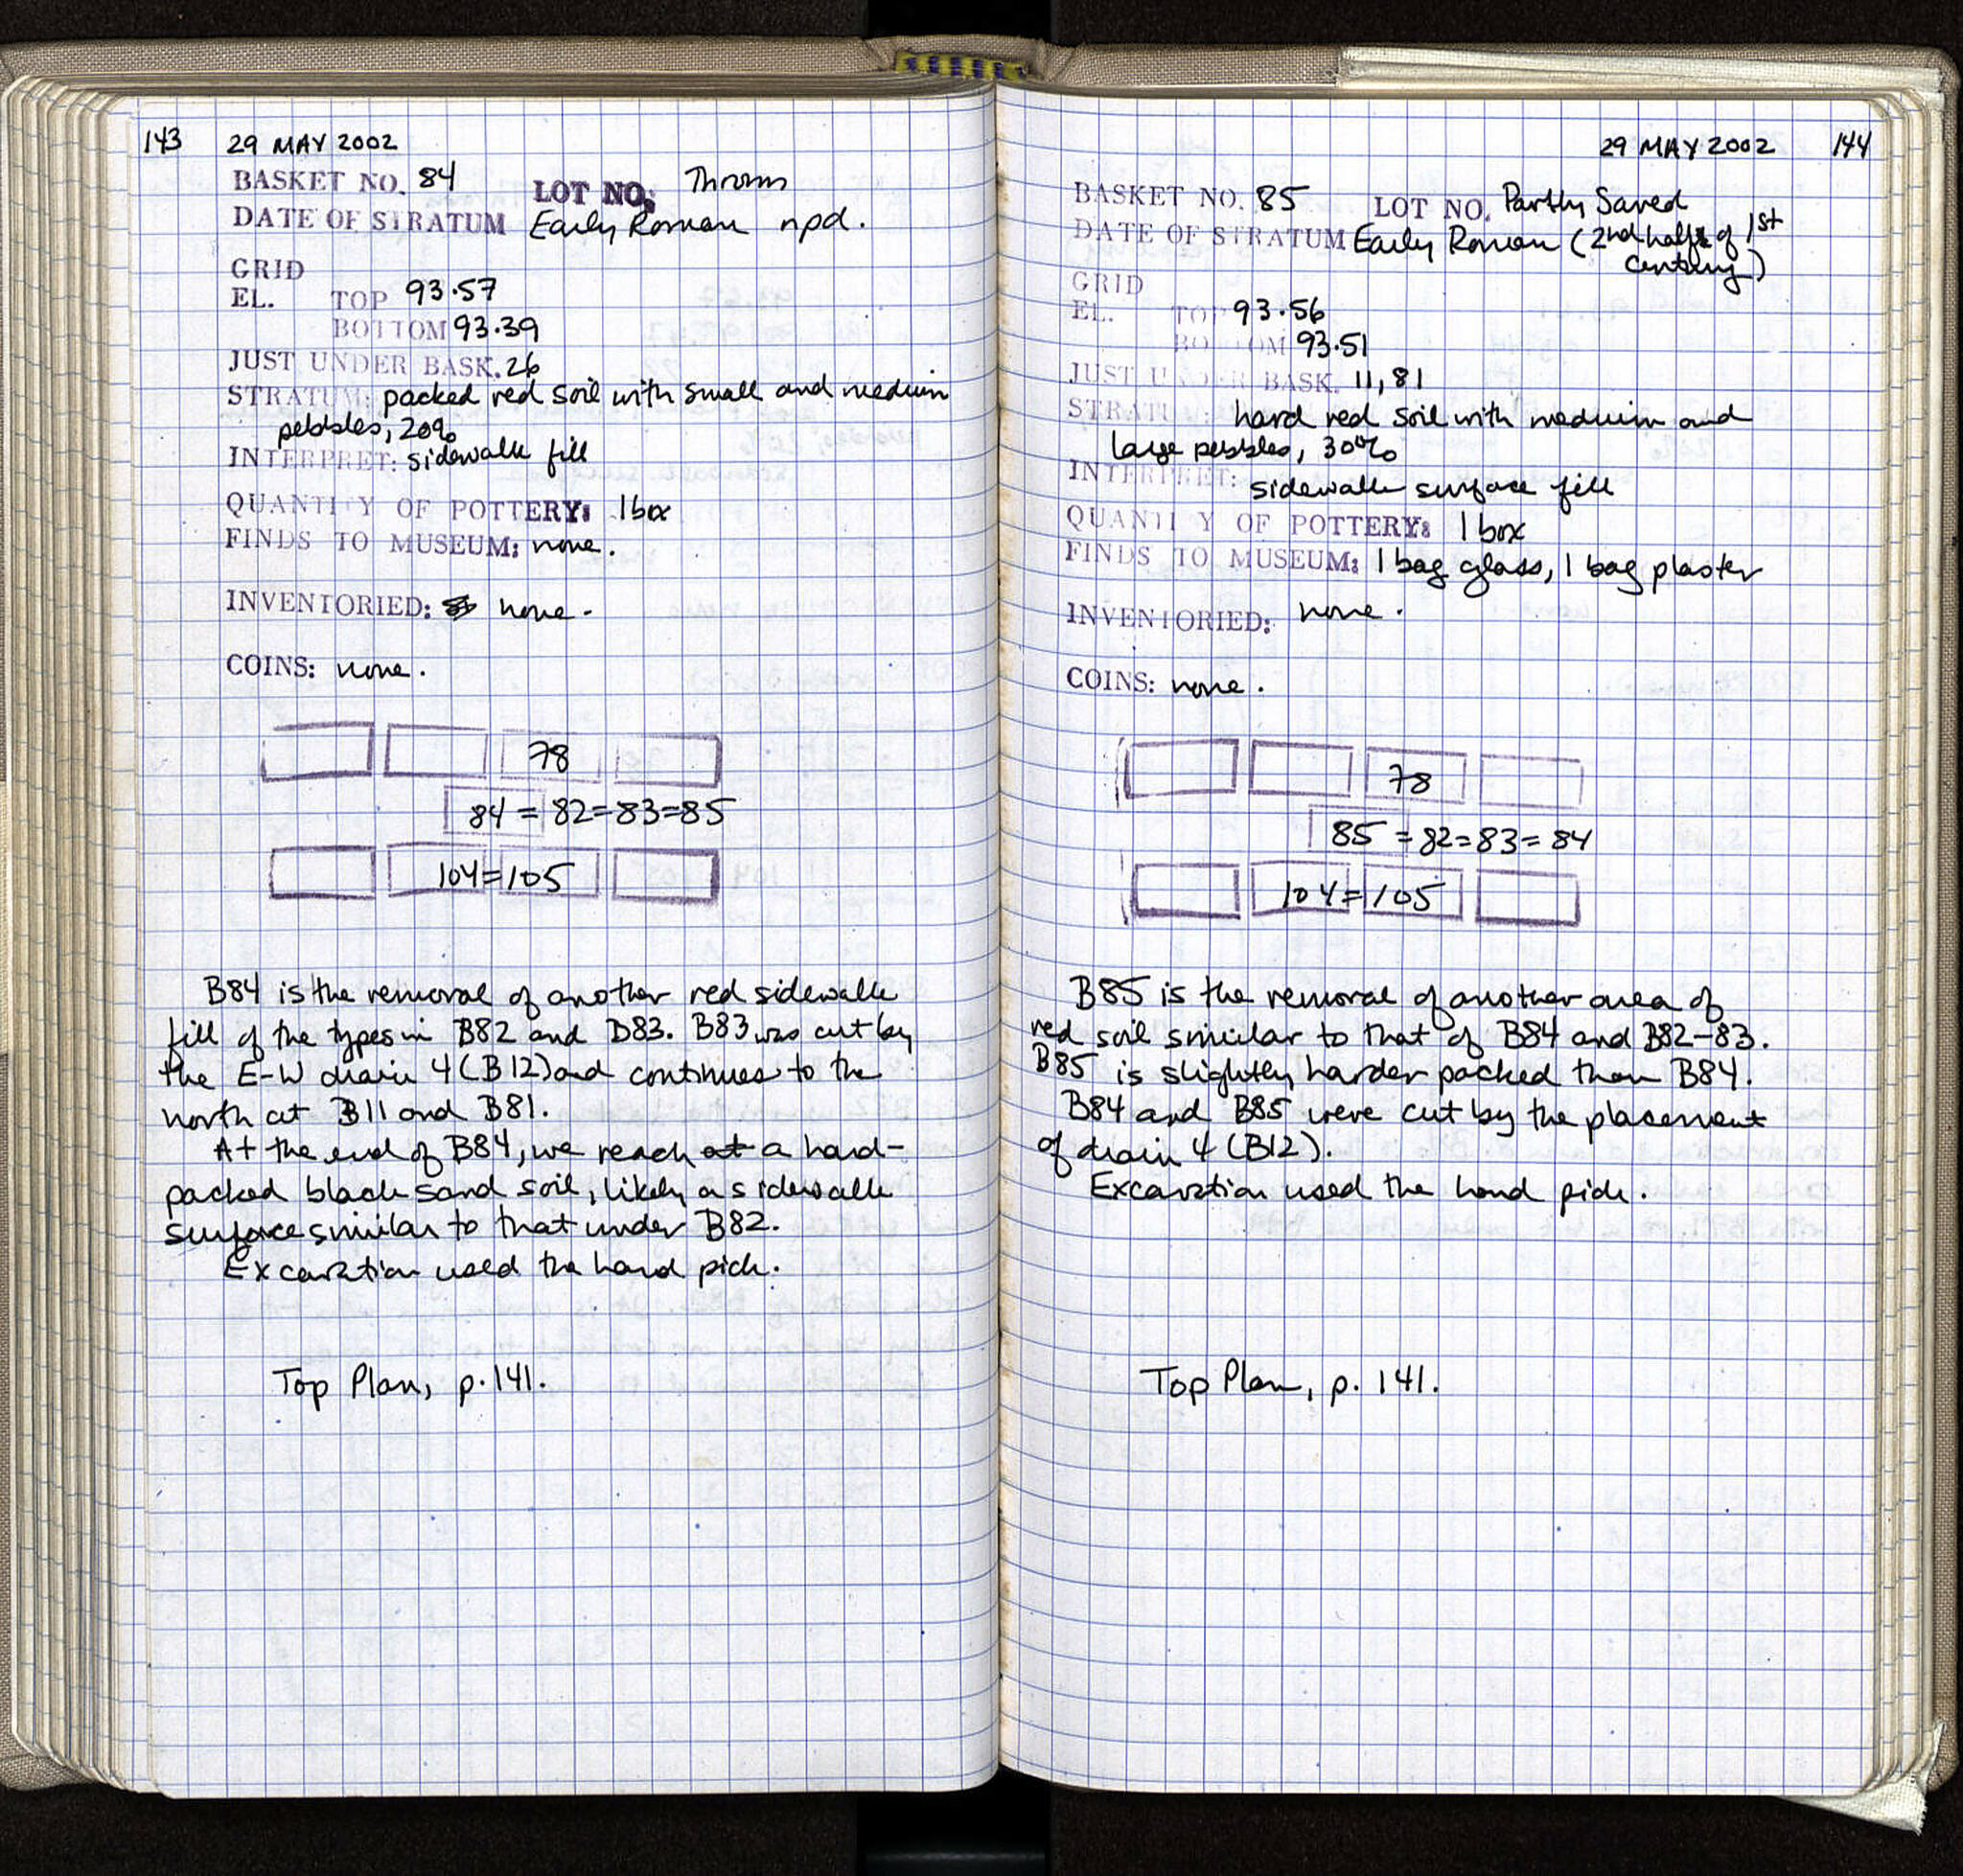 143 29 MAY 2002
BASKET NO. 84 LOT NO: Thrown
DATE OF STRATUM Early Roman npd.
GRID
EL. TOP 93.57
BOTTOM 93.39
JUST UNDER BASK. 26
STRATUM: packed red soil with small and medium
pebbles, 20%
INTERPRET: sidewalk fill
QUANTITY OF POTTERY: 1 box
FINDS TO MUSEUM: none.
INVENTORIED: none.
COINS: none.
78
84 = 82=83=85
104=105
B84 is the removal of another red sidewalk
fill of the types in B82 and B83. B83 was cut by
the E-W drain 4 (B12) and continues to the
north at B11 and B81.
At the end of B84, we reach at a hard-
packed black sand soil, likely a sidewalk
surface similar to that under B82.
Excavation used the hand pick.
Top Plan, p. 141.
29 MAY 2002 144
BASKET NO. 85 LOT NO. Partly Saved
DATE OF STRATUM Early Roman (2nd half of 1st
century)
GRID
EL. TOP 93.56
BOTTOM 93.51
JUST UNDER BASK. 11, 81
STRATUM: hard red soil with medium and
large pebbles, 30%
INTERPRET: sidewalk surface fill
QUANTITY OF POTTERY: 1 box
FINDS TO MUSEUM: 1 bag glass, 1 bag plaster
INVENTORIED: none.
COINS: none.
78
85 = 82=83=84
104=105
B85 is the removal of another area of
red soil similar to that of B84 and B82-83.
B85 is slightly harder packed than B84.
B84 and B85 were cut by the placement
of drain 4 (B12).
Excavation used the hand pick.
Top Plan, p. 141.